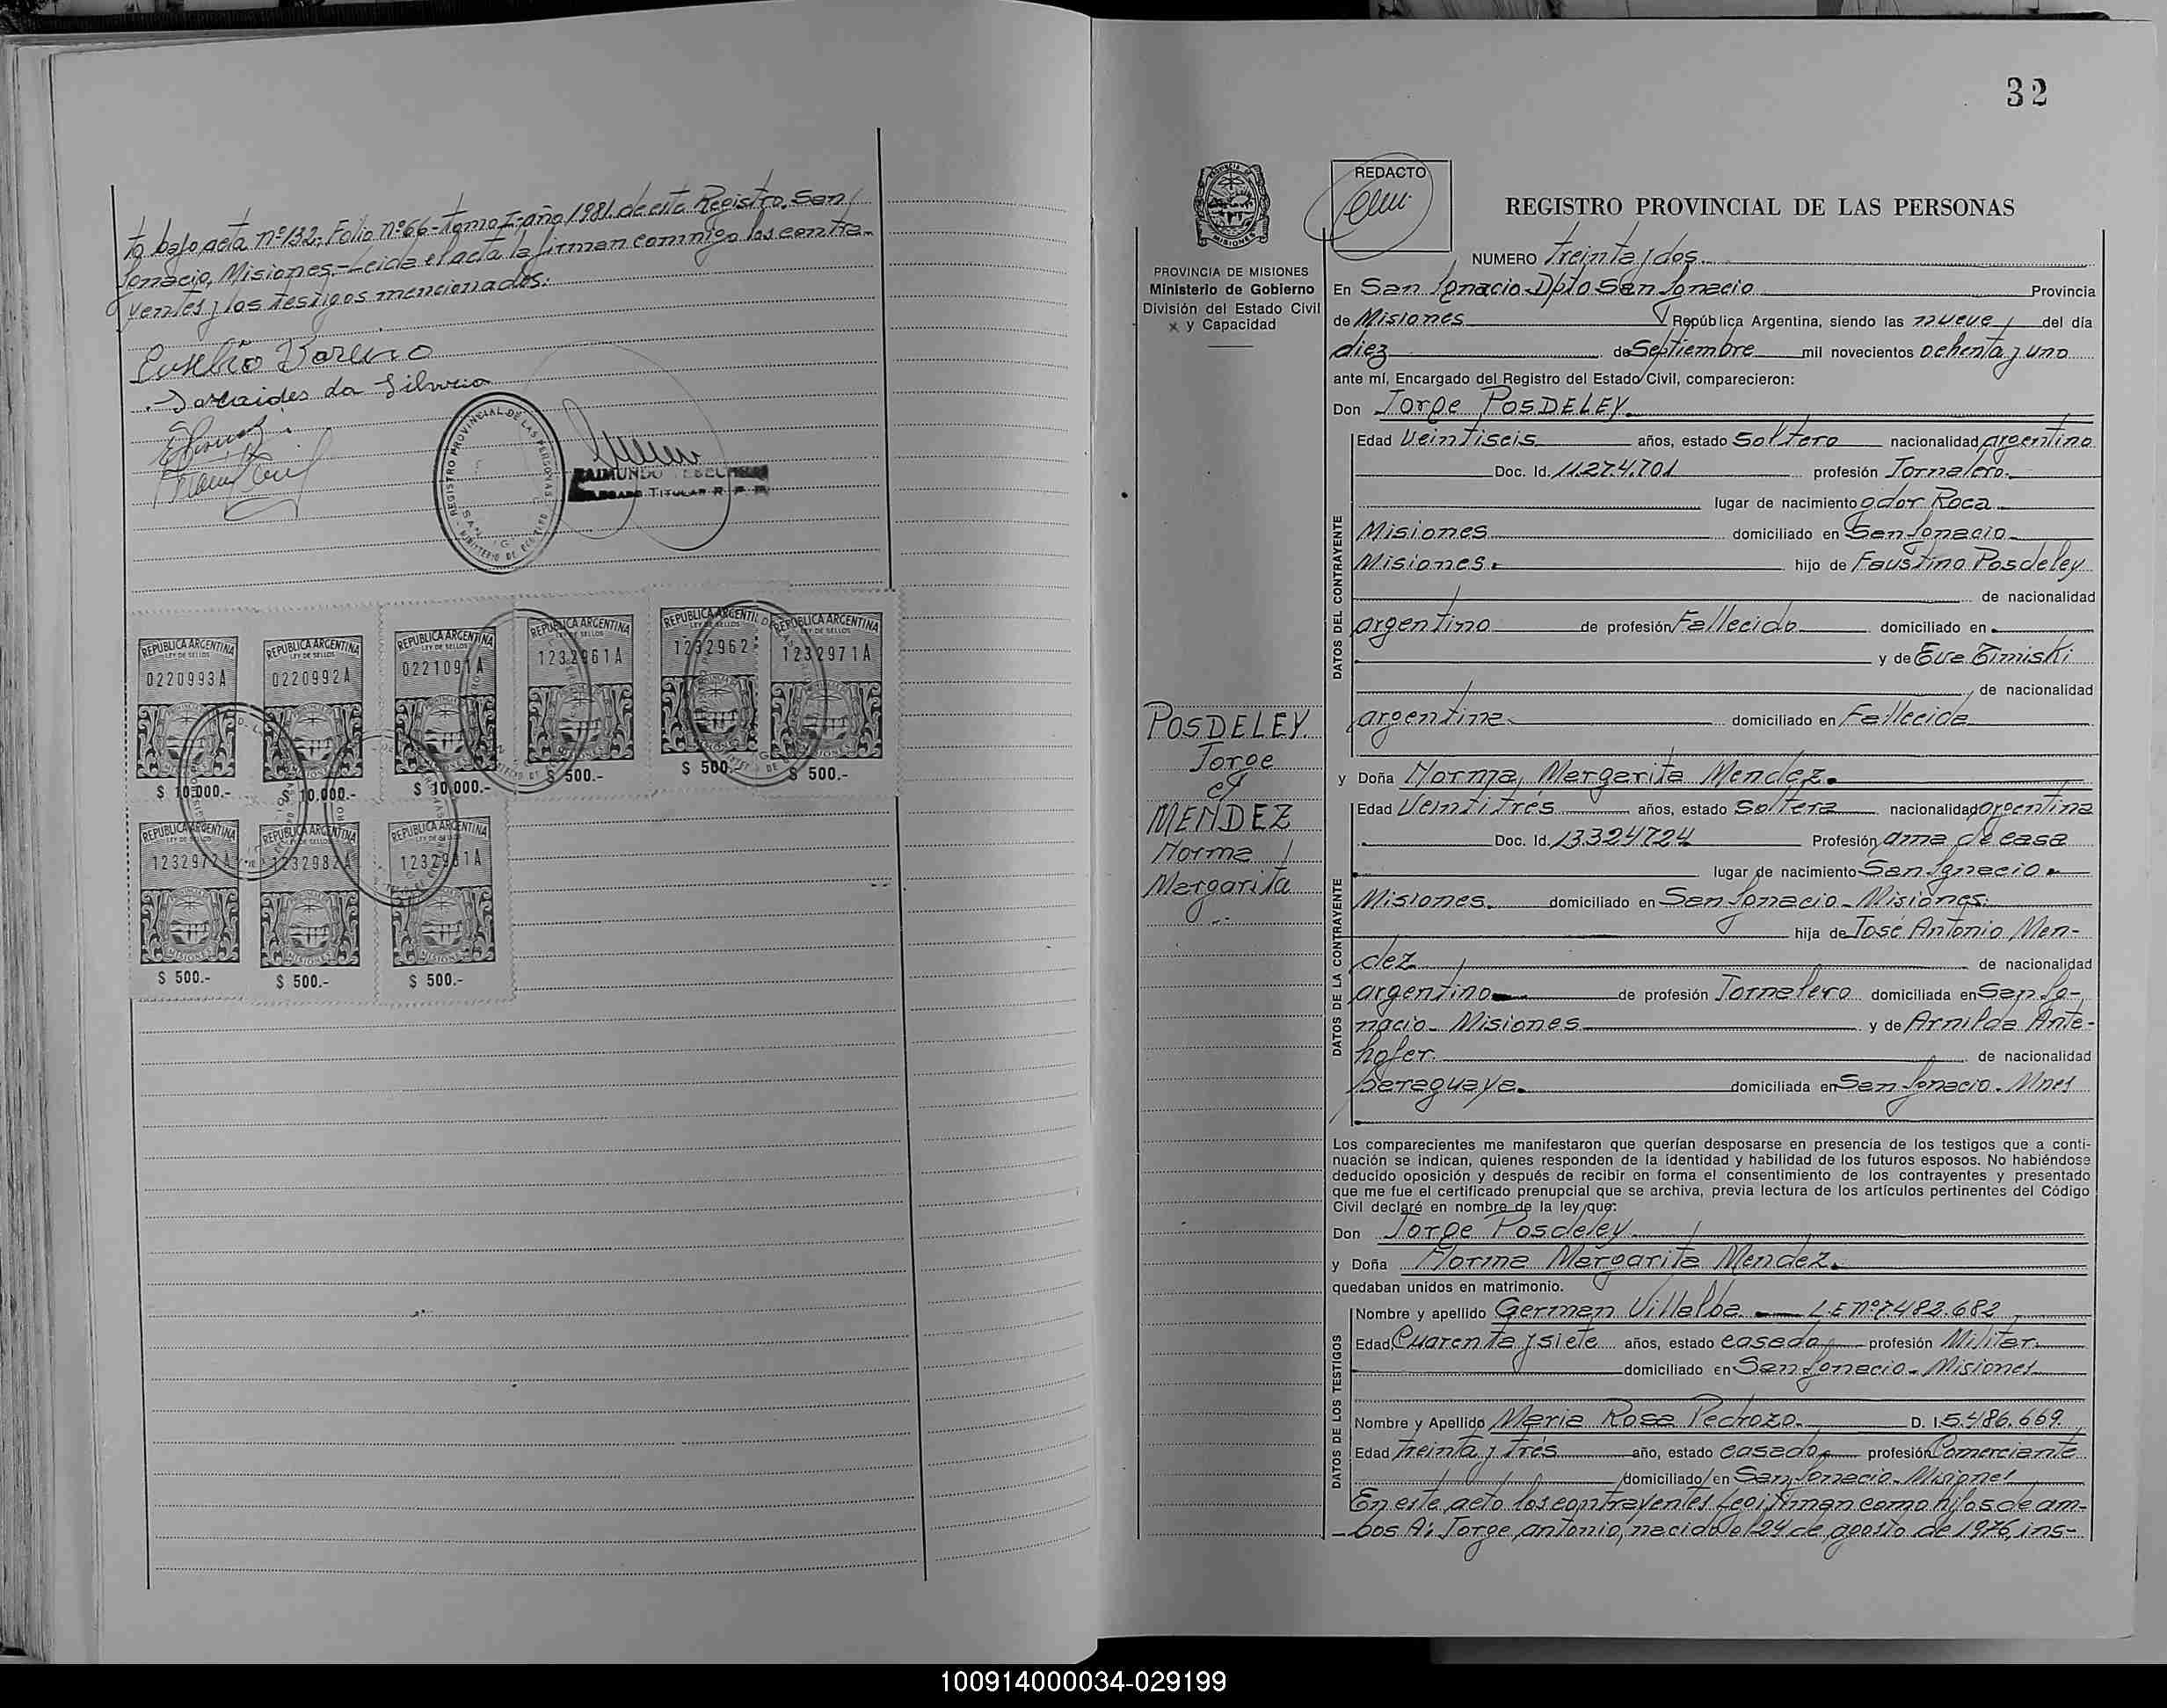 to bajo acta nº132, Folio nº66-tomo I-año 1981. de este Registro. San
Ignacio, Misiones.-Leida el acta la firman conmigo los contra-
yentes y los testigos mencionados.
Eusebio Bareiro
da Silveira
REGISTRO PROVINCIAL DE LAS PERSONAS
RAIMUNDO
TITULAR R. P. P.
REPUBLICA ARGENTINA
LEY DE SELLOS
0220993A
$ 10.000.-
REPUBLICA ARGENTINA
LEY DE SELLOS
0220992A
$ 10.000.-
REPUBLICA ARGENTINA
LEY DE SELLOS
0221091A
$ 10.000.-
REPUBLICA ARGENTINA
LEY DE SELLOS
1232961A
$ 500.-
REPUBLICA ARGENTI
LEY DE SELLOS
1232962
$ 500.-
REPUBLICA ARGENTINA
LEY DE SELLOS
1232971A
$ 500.-
REPUBLICA ARGENTINA
LEY DE SELLOS
1232972A
MISIONES
$ 500.-
REPUBLICA ARGENTINA
LEY DE SELLOS
1232982A
MISIONES
$ 500.-
REPUBLICA ARGENTINA
LEY DE SELLOS
1232981A
MISIONES
$ 500.-
32
PROVINCIA DE MISIONES
Ministerio de Gobierno
División del Estado Civil
y Capacidad
REDACTO
REGISTRO PROVINCIAL DE LAS PERSONAS
NUMERO treinta y dos.
En San Ignacio-Dpto San Ignacio Provincia
de Misiones República Argentina, siendo las nueve del día
diez de Septiembre mil novecientos ochenta y uno
ante mí, Encargado del Registro del Estado Civil, comparecieron:
Don Jorge POSDELEY.
DATOS DEL CONTRAYENTE
Edad Veintiseis años, estado Soltero nacionalidad argentino
Doc. Id. 11.274.701 profesión Jornalero.
lugar de nacimiento gdor Roca
Misiones domiciliado en San Ignacio
Misiones. hijo de Faustino Posdeley
de nacionalidad
argentino de profesión Fallecido domiciliado en
y de Eva Timiski
de nacionalidad
argentina domiciliado en Fallecida
POSDELEY.
Jorge
c/
MENDEZ
Norma
Margarita
y Doña Norma, Margarita Mendez.
DATOS DE LA CONTRAYENTE
Edad Veintitrés años, estado Soltera nacionalidad argentina
Doc. Id. 13.324724 Profesión ama de casa
lugar de nacimiento San Ignacio
Misiones. domiciliado en San Ignacio-Misiones.
hija de José Antonio Men-
dez de nacionalidad
argentino de profesión Jornalero domiciliada en San Ig-
nacio-Misiones y de Arnilda Ante-
hofer. de nacionalidad
paraguaya. domiciliada en San Ignacio. Mnes
Los comparecientes me manifestaron que querían desposarse en presencia de los testigos que a conti-
nuación se indican, quienes responden de la identidad y habilidad de los futuros esposos. No habiéndose
deducido oposición y después de recibir en forma el consentimiento de los contrayentes y presentado
que me fue el certificado prenupcial que se archiva, previa lectura de los artículos pertinentes del Código
Civil declaré en nombre de la ley que:
Don Jorge Posdeley.
y Doña Norma Margarita Mendez.
quedaban unidos en matrimonio.
DATOS DE LOS TESTIGOS
Nombre y apellido German Villalba L.E nº7.482.682
Edad Cuarenta y siete años, estado casado profesión Militar.
domiciliado en San Ignacio-Misiones
Nombre y Apellido Maria Rosa Pedrozo. D. I. 5.486.669.
Edad treinta y tres año, estado casada profesión Comerciante
domiciliado en San Ignacio-Misiones
En este acto los contrayentes legitiman como hijos de am-
-bos A: Jorge antonio, nacido el 24 de agosto de 1976, ins-
100914000034-029199